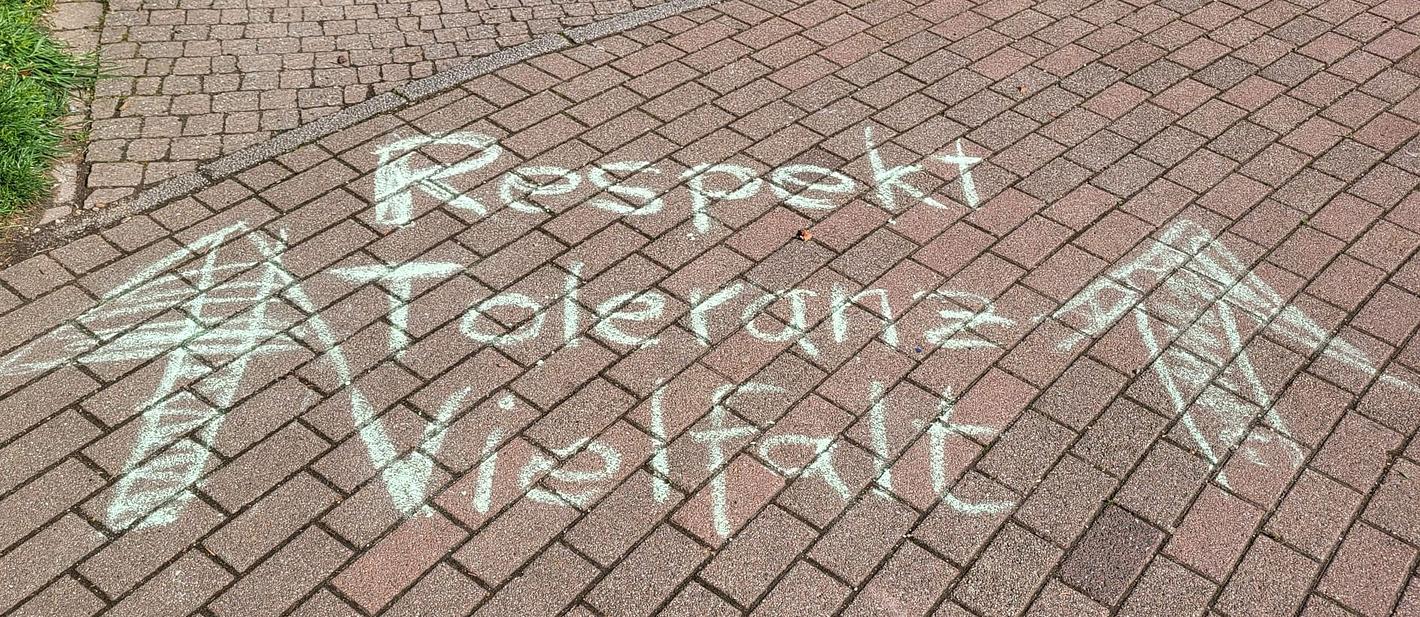 Respekt
Toleranz
Vielfalt